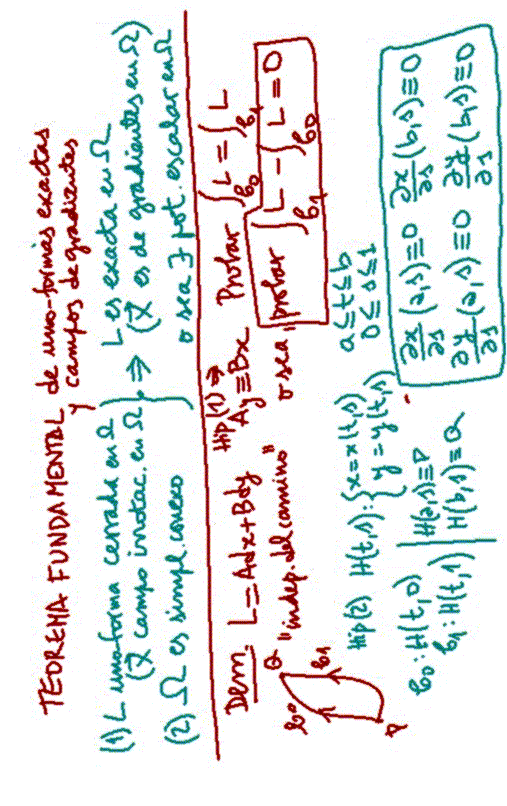 TEOREMA FUNDAMENTAL de uno-formas exactas
y campos de gradientes
(1) L uno-forma cerrada en Ω
(X⃗ campo irrotac. en Ω
(2) Ω es simpl. conexo
⇒ L es exacta en Ω
(X⃗ es de gradientes en Ω)
o sea ∃ pot. escalar en Ω
Dem. L = Adx + Bdy
Hip(1) ⇒
Ay ≡ Bx
Probar ∫_{b0} L = ∫_{b1} L
"indep. del camino"
o sea, probar ∫_{b1} L − ∫_{b0} L = 0
Q
b0
b1
P
Hip(2) H(t,s): { x = x(t,s)
y = y(t,s)
a ≤ t ≤ b
0 ≤ s ≤ 1
b0: H(t,0)
b1: H(t,1)
H(a,s) ≡ P
H(b,s) ≡ Q
∂x/∂s (a,s) ≡ 0 ∂x/∂s (b,s) ≡ 0
∂y/∂s (a,s) ≡ 0 ∂y/∂s (b,s) ≡ 0